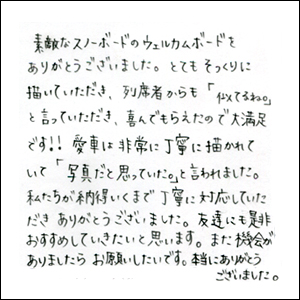 素敵なスノーボードのウェルカムボードを
ありがとうございました。とてもそっくりに
描いていただき、列席者からも「似てるねっ。
と言っていただき、喜んでもらえたので大満足
です!! 愛車は非常に丁寧に描かれて
いて「写真だと思っていた。」と言われました。
私たちが納得いくまで丁寧に対応していた
だきありがとうございました。友達にも是非
おすすめしていきたいと思います。また機会が
ありましたらお願いしたいです。本当にありがとう
ございました。